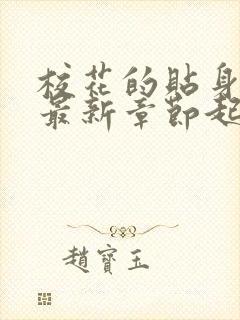 校花的貼身
最新章節起
趙寶玉